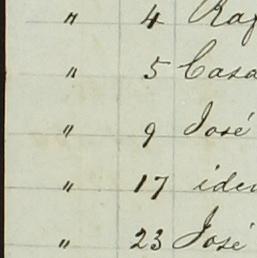 " 4 Raf
" 5 Casa
" 9 José
" 17 iden
" 23 José